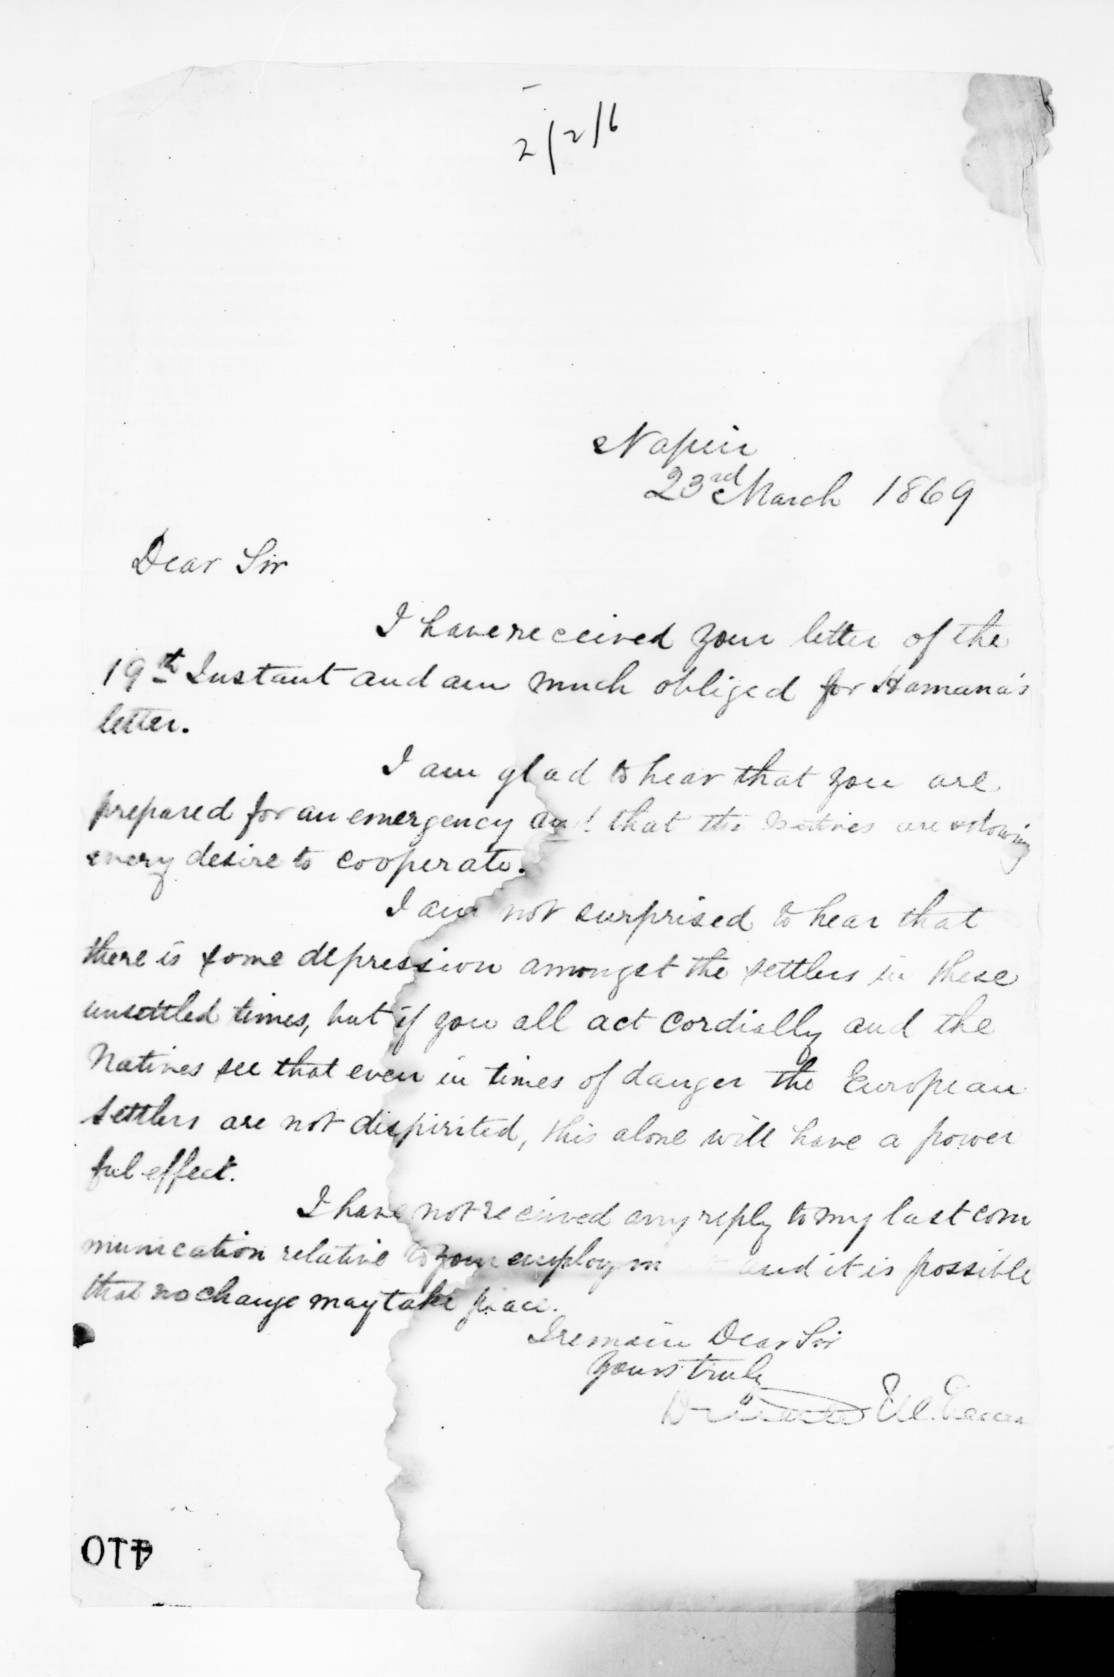 2/2/6
Napier
23rd March 1869
Dear Sir
I have received your letter of the
19th Instant and am much obliged for Hamana's
letter.
I am glad to hear that you are
prepared for an emergency and that the Natives are showing
every desire to cooperate.
I am not surprised to hear that
there is some depression amongst the settlers in these
unsettled times, but if you all act cordially and the
Natives see that even in times of danger the European
settlers are not dispirited, this alone will have a power
ful effect.
I have not received any reply to my last com
munication relative to your employm and it is possible
that no change may take place.
I remain Dear Sir
Yours truly
410